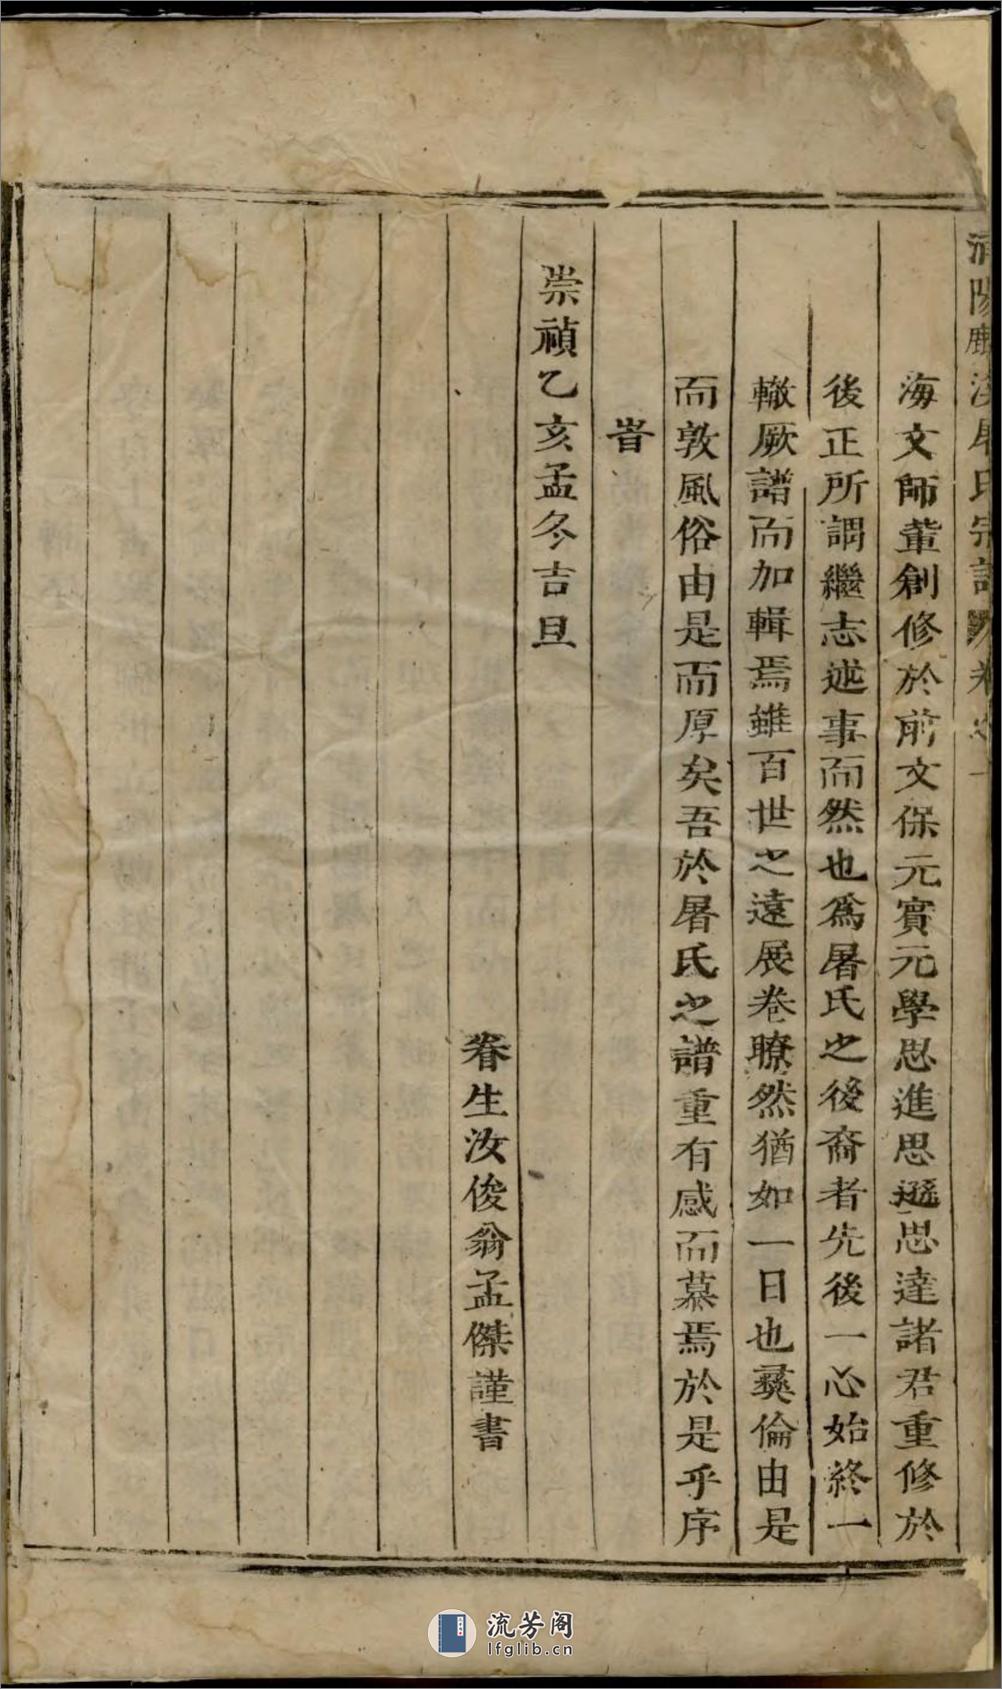 陽鹿溪屠氏宗譜卷之一
海文師輩創修於前文保元賓元學思進思遜思達諸君重修於
後正所謂繼志述事而然也爲屠氏之後裔者先後一心始終一
轍厥譜而加輯焉雖百世之遠展卷瞭然猶如一日也彛倫由是
而敦風俗由是而厚矣吾於屠氏之譜重有感而慕焉於是乎序
旹
崇禎乙亥孟冬吉旦
眷生汝俊翁孟傑謹書
流芳阁
lfglib.cn